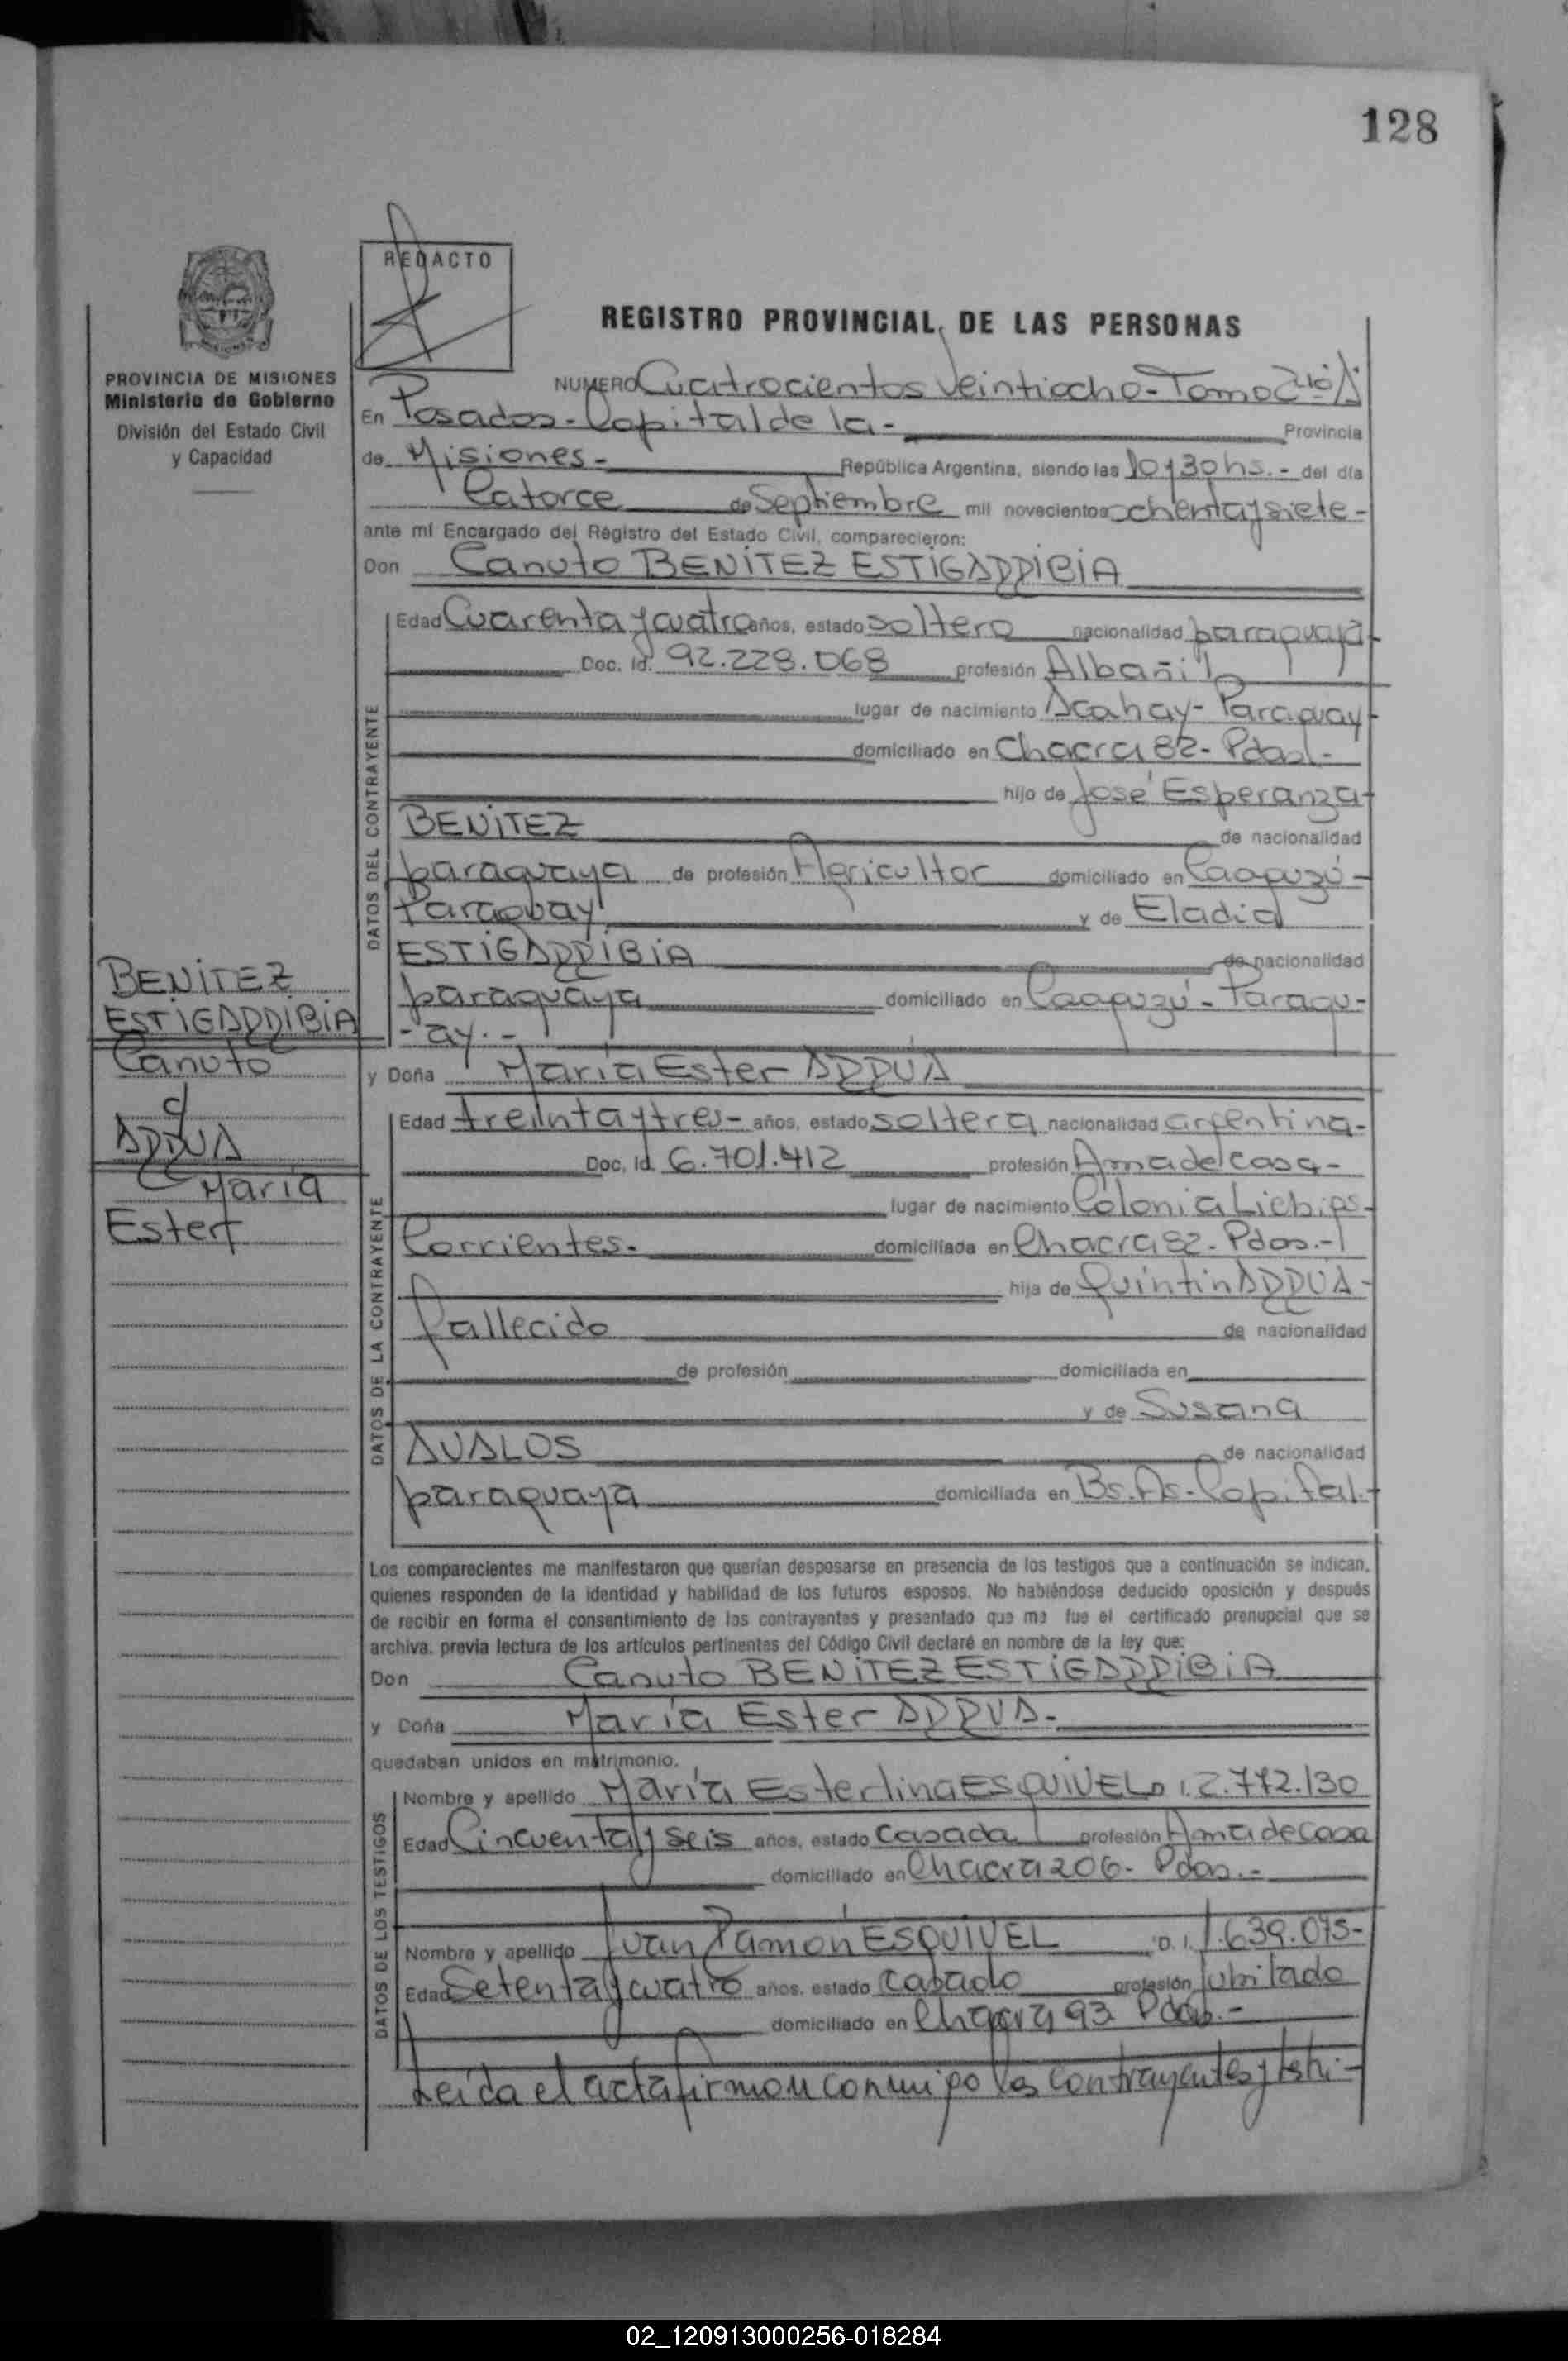 128
REDACTO
REGISTRO PROVINCIAL DE LAS PERSONAS
PROVINCIA DE MISIONES
Ministerio de Gobierno
División del Estado Civil
y Capacidad
NUMERO Cuatrocientos Veintiocho - Tomo
En Posadas - Capital de la - Provincia
de Misiones - República Argentina, siendo las 10 y 30 hs. - del día
Catorce de Septiembre mil novecientos ochenta y siete -
ante mi Encargado del Registro del Estado Civil, comparecieron:
Don Canuto BENITEZ ESTIGARRIBIA
Edad Cuarenta y cuatro años, estado soltero nacionalidad paraguaya
Doc. Id. 92.228.068 profesión Albañil
lugar de nacimiento Acahay - Paraguay
domiciliado en Chacra 82 - Pdas. -
hijo de José Esperanza
BENITEZ de nacionalidad
paraguaya de profesión Agricultor domiciliado en Caapuzú -
Paraguay y de Eladia
ESTIGARRIBIA de nacionalidad
paraguaya domiciliado en Caapuzú - Paragu-
- ay. -
DATOS DEL CONTRAYENTE
BENITEZ
ESTIGARRIBIA
Canuto
ARRUA
María
Ester
y Doña María Ester ARRUA
Edad treinta y tres - años, estado soltera nacionalidad argentina -
Doc. Id. 6.701.412 profesión Ama de casa -
lugar de nacimiento Colonia Liebigs -
Corrientes. - domiciliada en Chacra 82 - Pdas. -
hija de Quintin ARRUA -
fallecido de nacionalidad
de profesión domiciliada en
y de Susana
AVALOS de nacionalidad
paraguaya domiciliada en Bs. As - Capital. -
DATOS DE LA CONTRAYENTE
Los comparecientes me manifestaron que querían desposarse en presencia de los testigos que a continuación se indican,
quienes responden de la identidad y habilidad de los futuros esposos. No habiéndose deducido oposición y después
de recibir en forma el consentimiento de los contrayentes y presentado que me fue el certificado prenupcial que se
archiva, previa lectura de los artículos pertinentes del Código Civil declaré en nombre de la ley que:
Don Canuto BENITEZ ESTIGARRIBIA
y Doña María Ester ARRUA -
quedaban unidos en matrimonio.
Nombre y apellido María Esterlina ESQUIVEL D.I. 2.772.130
Edad Cincuenta y seis años, estado casada profesión Ama de casa
domiciliado en Chacra 206 - Pdas. -
Nombre y apellido Juan Ramón ESQUIVEL D. I. 1.639.075 -
Edad Setenta y cuatro años, estado casado profesión Jubilado
domiciliado en Chacra 93 Pdas. -
DATOS DE LOS TESTIGOS
Leída el acta firman conmigo los contrayentes y testi -
02_120913000256-018284